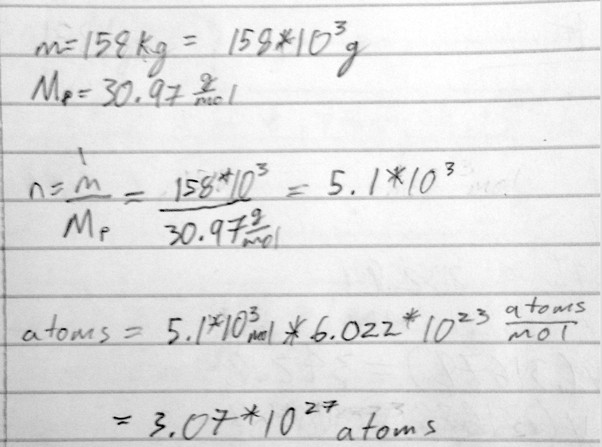 m=158kg = 158*10³g
Mₚ= 30.97 g/mol
n= m/Mₚ = 158*10³/30.97 g/mol = 5.1*10³
atoms = 5.1*10³ mol * 6.022*10²³ atoms/mol
= 3.07*10²⁷ atoms